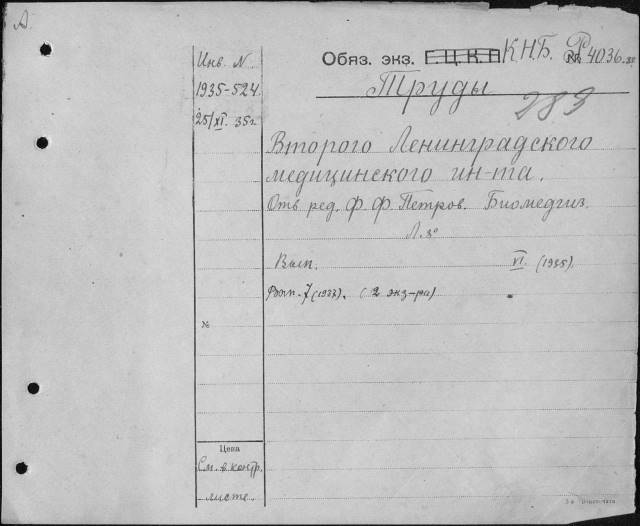 А.
Инв. N
1935-524
25/XI. 35 г.
Обяз. экз. Г.Ц.К.П К.Н.Б. Р 4036
Труды
283
Второго Ленинградского
медицинского ин-та.
Отв ред. Ф. Ф. Петров. Биомедгиз.
Вып. VI. (1935)
Вып. 7 (1937). (2 экз-ра)
№
Цена
См. в. контр.
листе